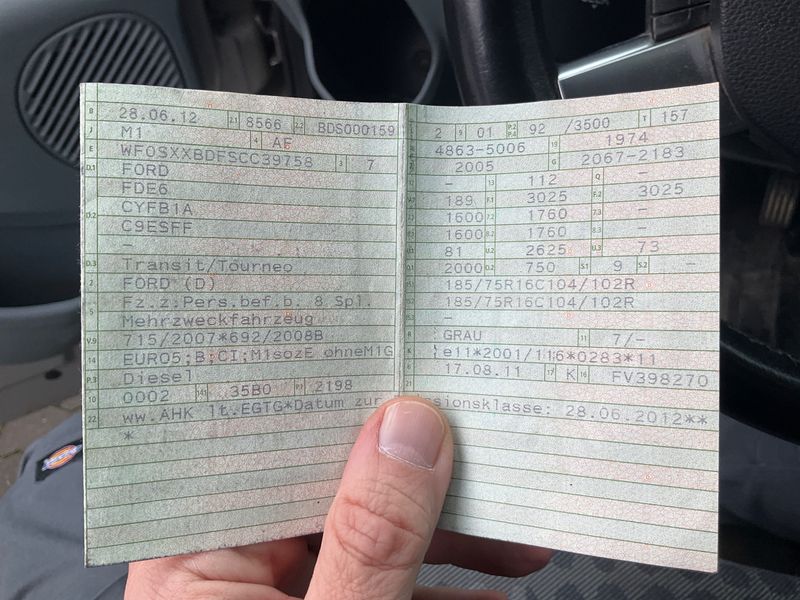 B 28.06.12 2.1 8566 2.2 BDS000159
J M1 4 AF
E WF0SXXBDFSCC39758 3 7
D.1 FORD
FDE6
D.2 CYFB1A
C9ESFF
-
D.3 Transit/Tourneo
2 FORD (D)
5 Fz.z.Pers.bef.b. 8 Spl.
Mehrzweckfahrzeug
V.9 715/2007*692/2008B
14 EURO5;B;CI;M1sozE ohneM1G
P.3 Diesel
10 0002 14.1 35B0 P.1 2198
22 ww.AHK lt.EGTG*Datum zur sionsklasse: 28.06.2012**
*
2 9 01 P.2 P.4 92 /3500 T 157
4863-5006 19 1974
2005 G 2067-2183
- 13 112 Q -
189 F.1 3025 F.2 3025
1600 7.2 1760 7.3 -
1600 8.2 1760 8.3 -
81 U.2 2625 U.3 73
2000 O.2 750 S.1 9 S.2 -
185/75R16C104/102R
185/75R16C104/102R
-
GRAU 11 7/-
K e11*2001/116*0283*11
6 17.08.11 17 K 16 FV398270
21